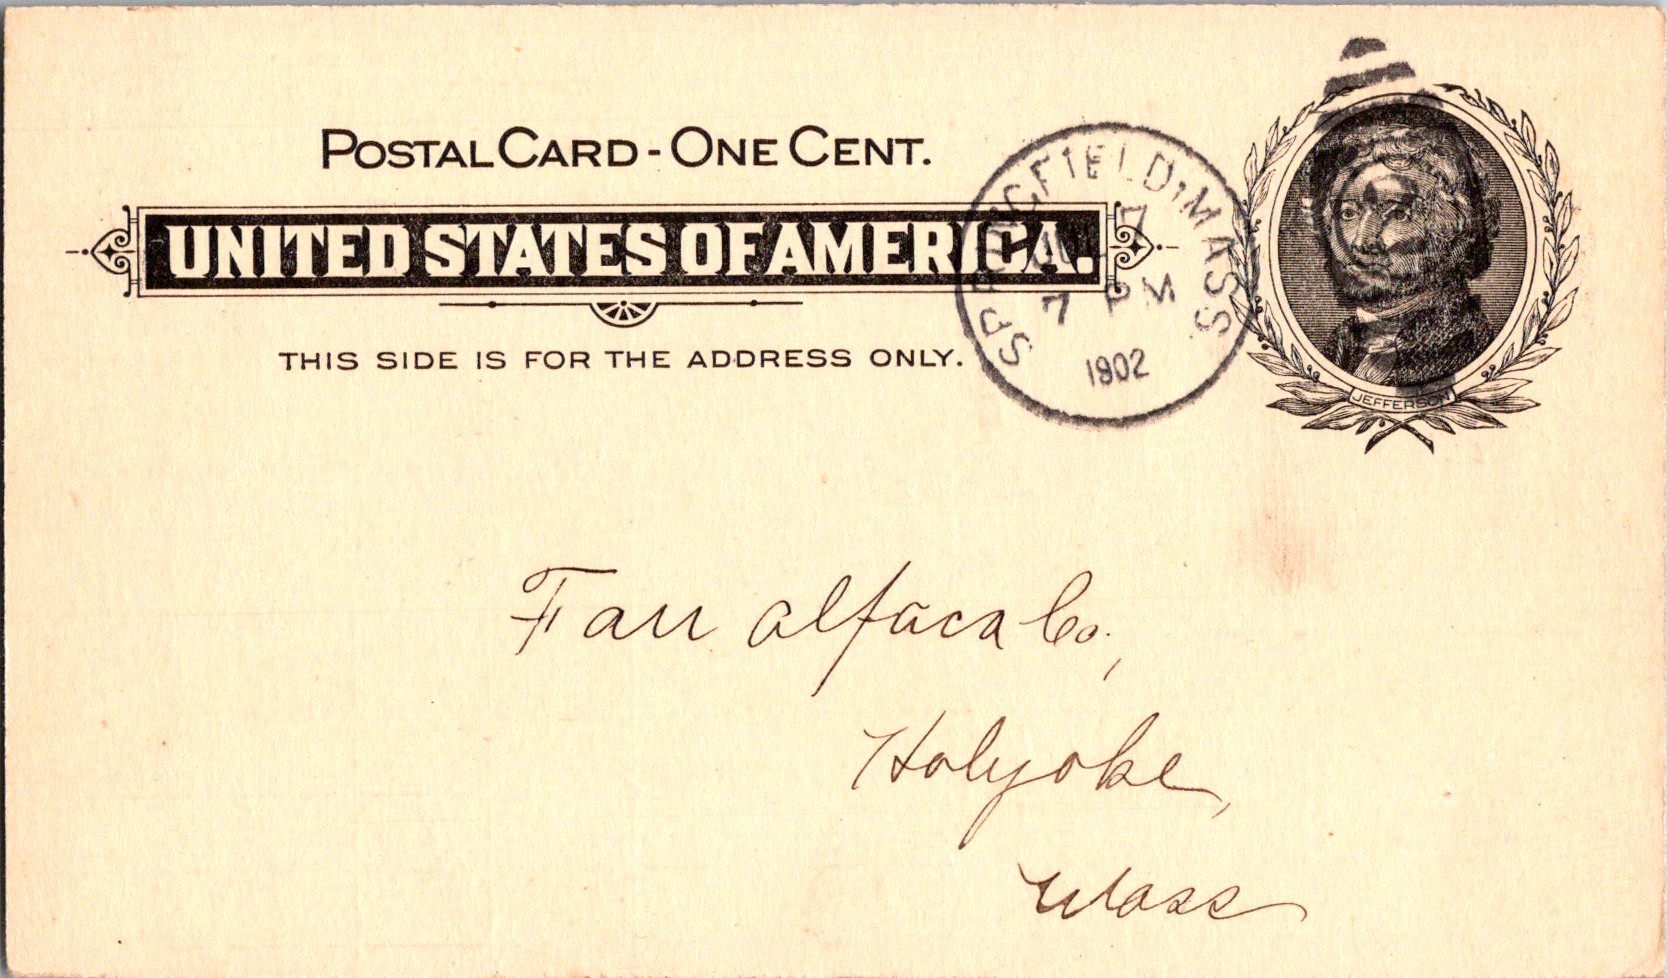 POSTAL CARD - ONE CENT.
UNITED STATES OF AMERICA.
THIS SIDE IS FOR THE ADDRESS ONLY.
SPRINGFIELD, MASS
7
7 PM
1902
JEFFERSON
Farr Alfaca Co.,
Holyoke,
Mass